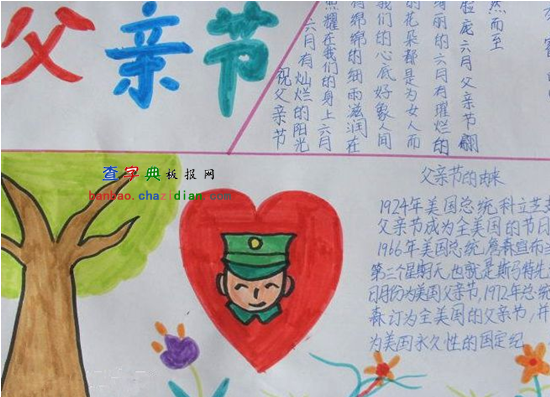 父亲节
然而至
脸庞六月父亲节翩
绚丽的六月有璀烂的
的花朵都是为女人而
我们的心底好象人间
有绵绵的细雨滋润在
照耀在我们的身上六月
六月有灿烂的阳光
祝父亲节
查字典板报网
banbao.chazidian.com
父亲节的由来
1924年美国总统科立芝
父亲节成为全美国的节日
1966年美国总统詹森宣布
第三个星期天也就是斯马特先
日月份为美国父亲节,1972年总统
森订为全美国的父亲节,并
为美国永久性的国定纪